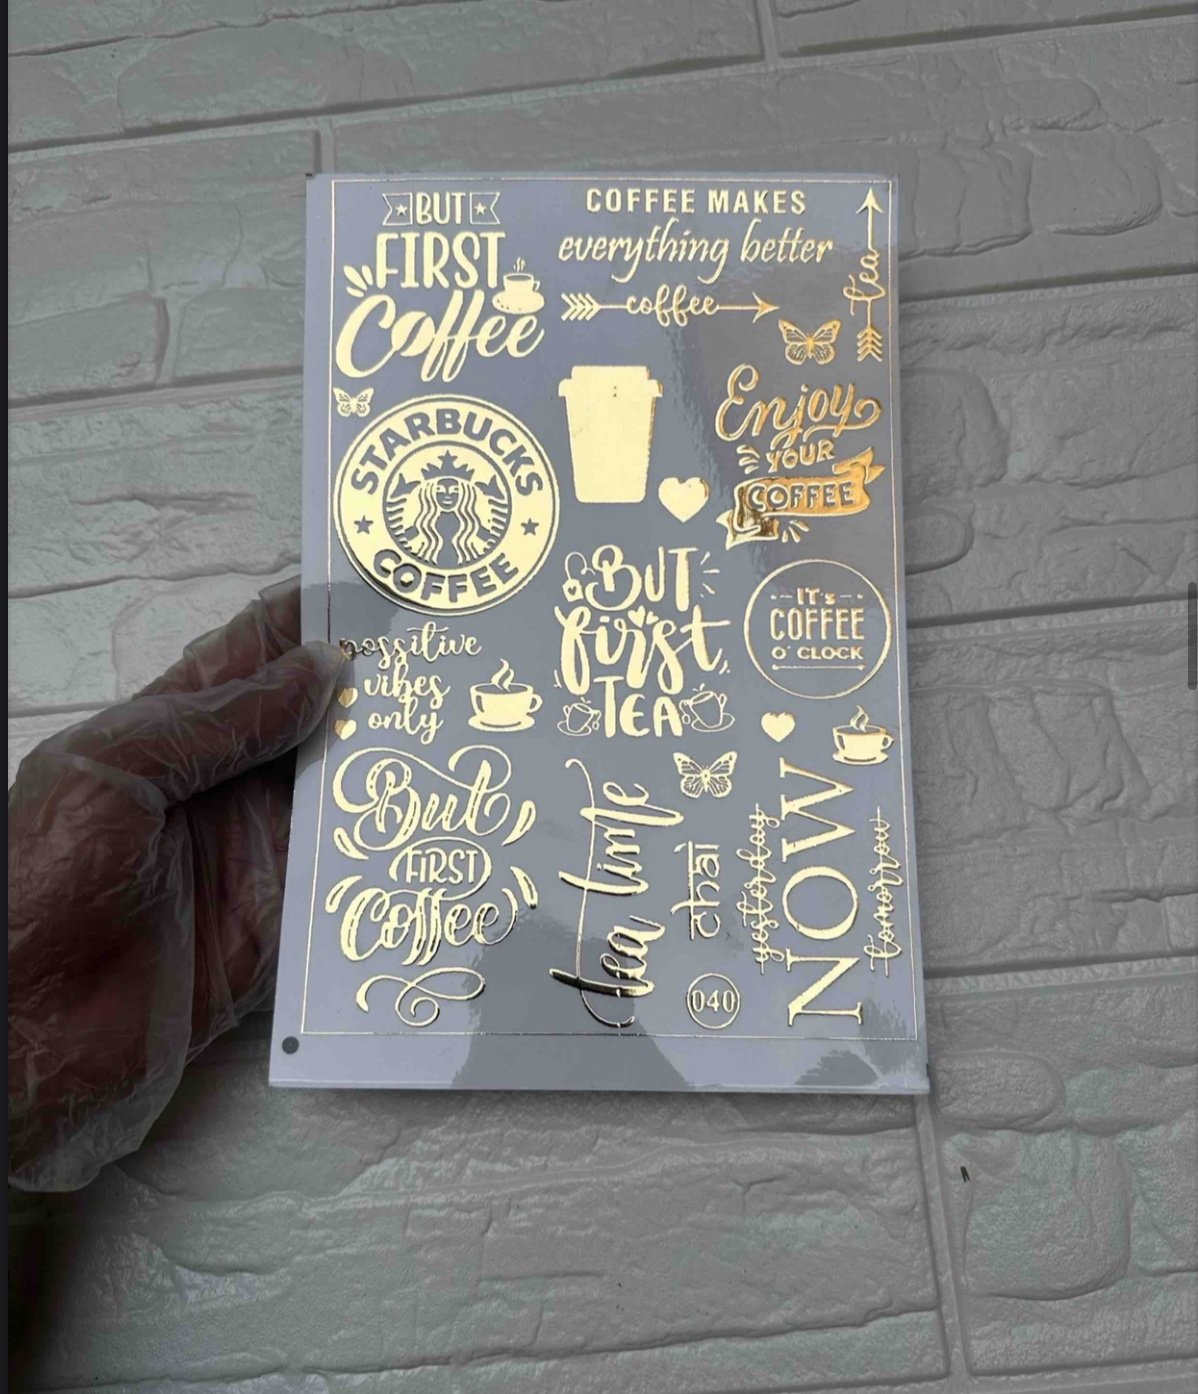 BUT
FIRST
Coffee
COFFEE MAKES
everything better
coffee
tea
STARBUCKS
COFFEE
Enjoy
YOUR
COFFEE
BUT
first
TEA
IT's
COFFEE
O' CLOCK
possitive
vibes
only
But
FIRST
Coffee
tea time
chai
040
yesterday
NOW
tomorrow